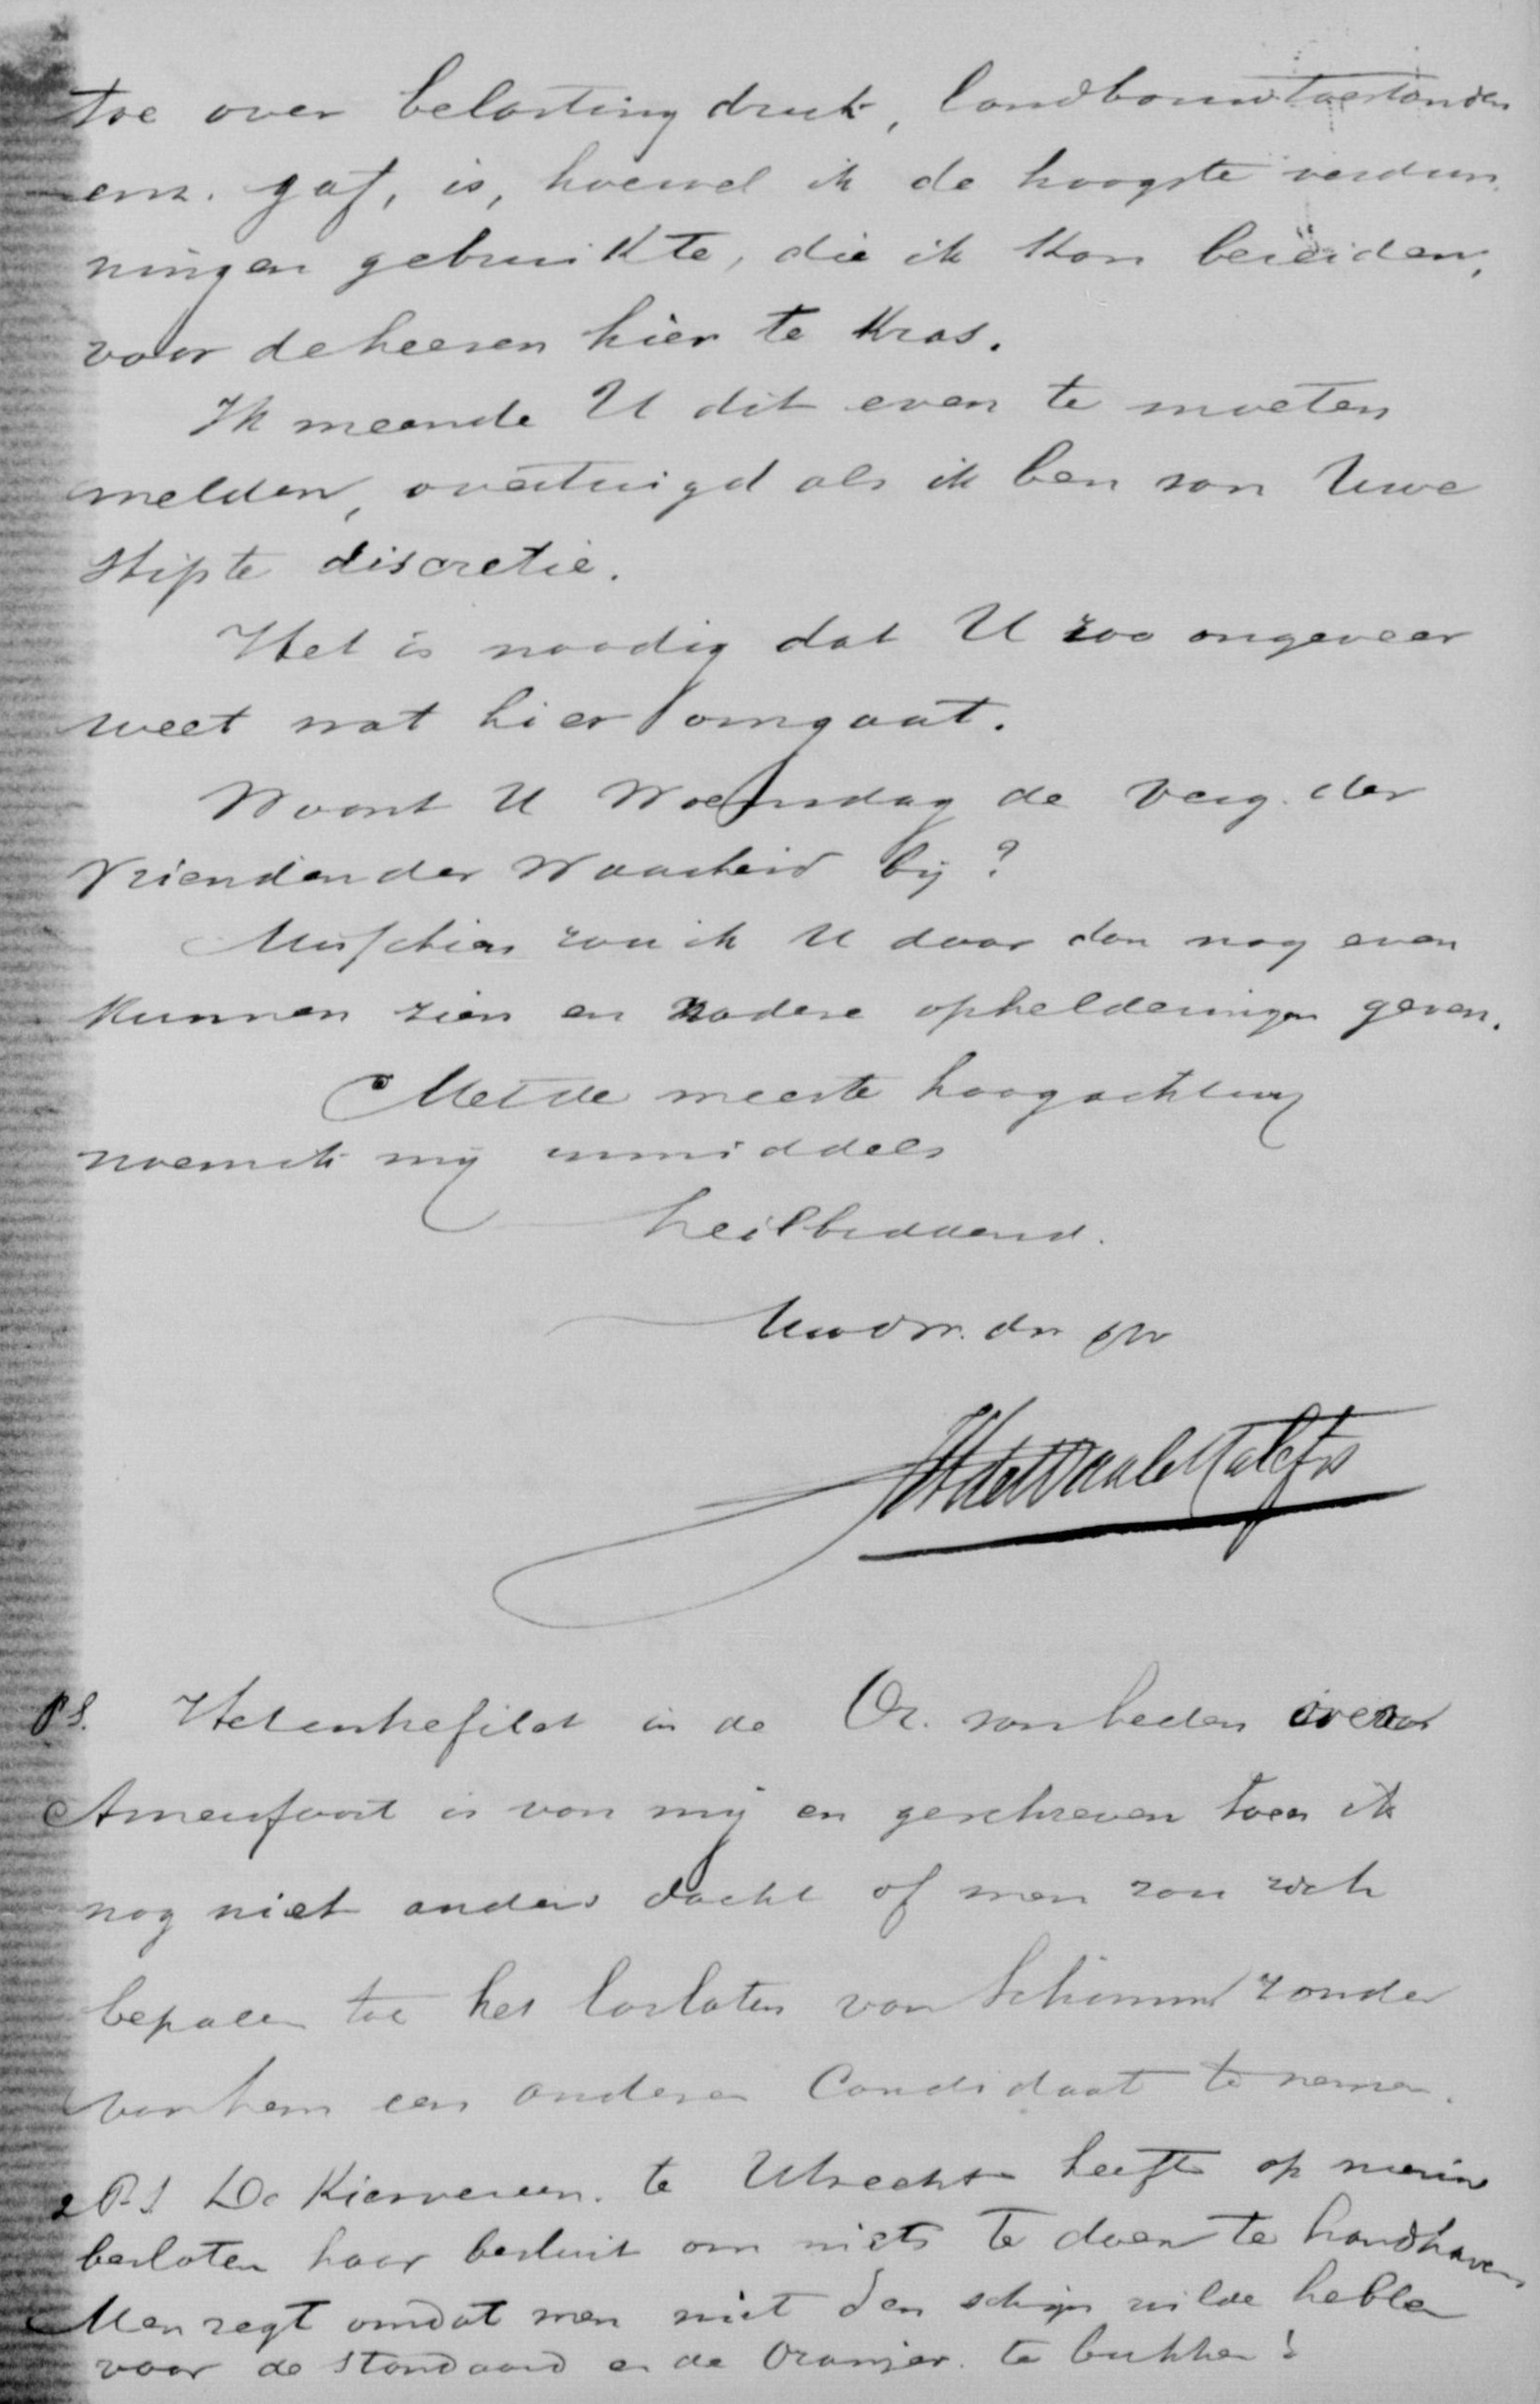 toe over belastingdruk, landbouwtoestanden
enz. gaf, is, hoewel ik de hoogste verdun-
ningen gebruikte, die ik kon bereiden,
voor de heeren hier te kras.
Ik meende U dit even te moeten
melden, overtuigd als ik ben van Uwe
stipte discretie.
Het is noodig dat U zoo ongeveer
weet wat hier omgaat.
Woont U Woensdag de verg. der
Vrienden der Waarheid bij?
Misschien zou ik U daar dan nog even
kunnen zien en nadere ophelderingen geven.
Met de meeste hoogachting
noem ik mij inmiddels
heilbiddend.
Uwdw. dr
PS. Het entrefilet in de Or. van heden over
Amersfoort is van mij en geschreven toen ik
nog niet anders dacht of men zou zich
bepalen tot het loslaten van Schimmel zonder
voor hem een anderen Candidaat te nemen.
2 P.S De Kiesvereen. te Utrecht heeft op nieuw
besloten haar besluit om niets te doen te handhaven
Men zegt omdat men niet den schijn wilde hebben
voor de Standaard en de Oranjer. te bukken!